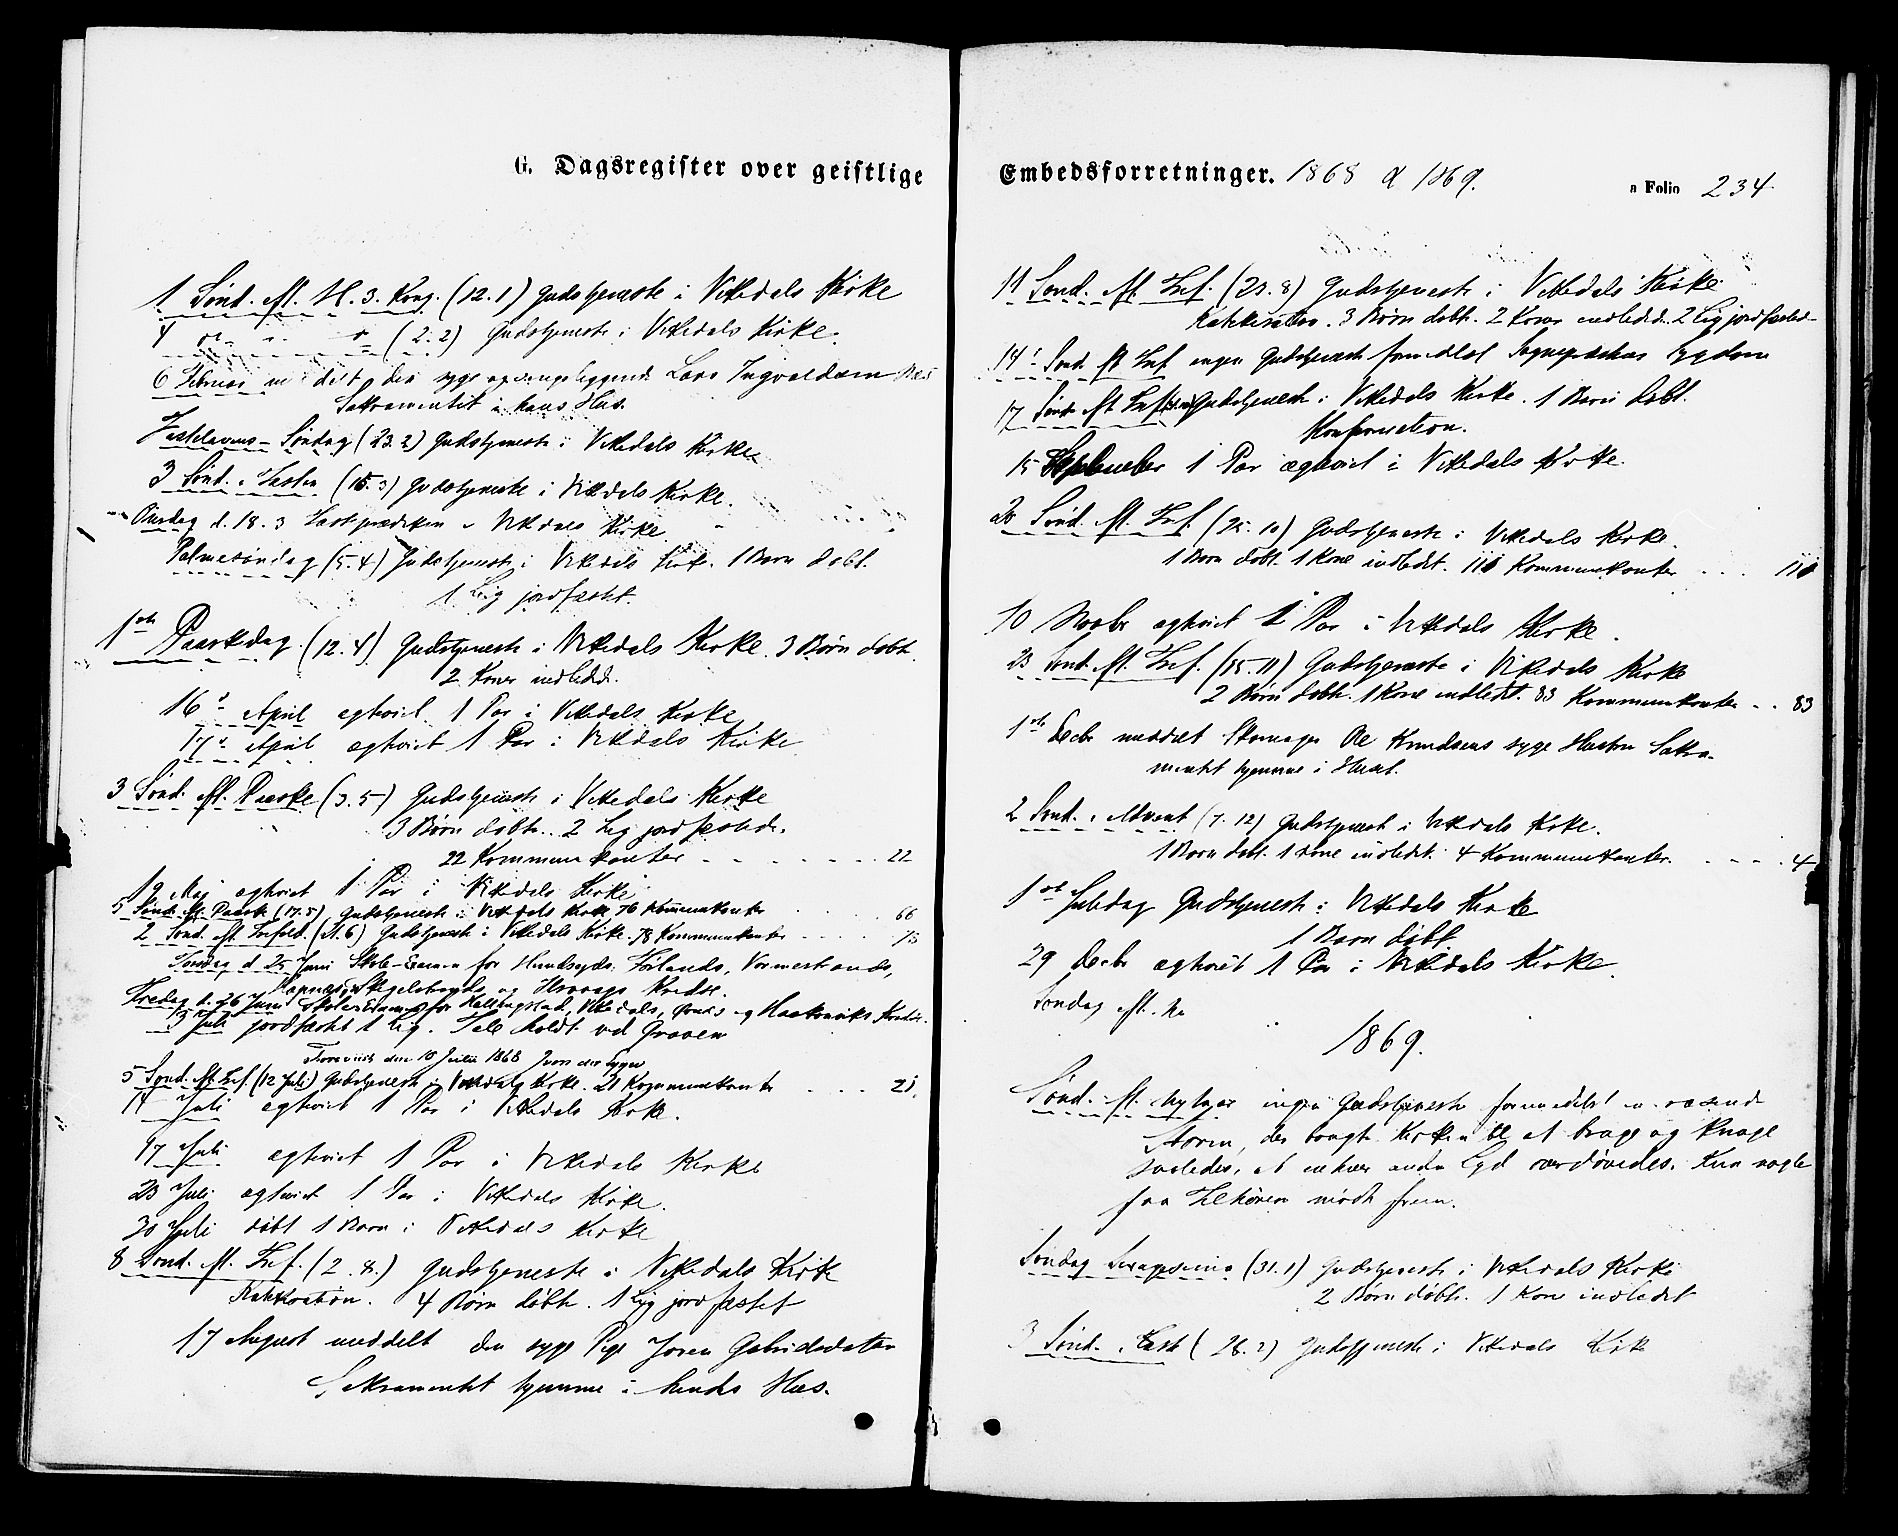 G. Dagsregister over geistlige
1 Sønd. eft. H. 3. Kong. (12.1) Gudstjeneste i Vikedals Kirke
4 (2.2) Gudstjeneste i Vikedals Kirke.
6 Februar meddelt den syge og sengeliggende Lars Ingvaldsen
Sakramentet i hans Hus.
Fastelavns-Søndag (23.2) Gudstjeneste i Vikedals Kirke
3 Sønd. i Fasten (15.3) Gudstjeneste i Vikedals Kirke.
Onsdag d. 18.3 Fastprædiken i Vikedals Kirke
Palmesøndag (5.4) Gudstjeneste i Vikedals Kirke. 1 Barn døbt.
1 Lig jordfæstet.
1ste Paaskedag (12.4) Gudstjeneste i Vikedals Kirke. 3 Børn døbte.
2 Koner indledede.
16de April egteviet 1 Par i Vikedals Kirke
17de April egteviet 1 Par i Vikedals Kirke
3 Sønd. eft. Paaske (3.5) Gudstjeneste i Vikedals Kirke
3 Børn døbte. 2 Lig jordfæstede.
22 Kommunikanter - - - - - - 22
19 Maj egteviet 1 Par i Vikedals Kirke
5 Sønd. eft. Paaske (17.5) Gudstjeneste i Vikedals Kirke 76 Kommunikanter
2 Sønd. eft. Trefold. (21.6) Gudstjeneste i Vikedals Kirke. 78 Kommunikanter
Torsdag d. 25 Juni Skole-Examen for
og Kredse.
Fredag d. 26 Juni Skole-Examen for Vikedals, og Kredse.
3 Juli jordfæstet 1 Lig. Tale holdt ved Graven
den 10 Julii 1868
5 Sønd. eft. Tref. (12 Juli) Gudstjeneste i Vikedals Kirke. 21 Kommunikanter - - - 21.
Juli egteviet 1 Par i Vikedals Kirke.
17 Juli egteviet 1 Par i Vikedals Kirke
23 Juli egteviet 1 Par i Vikedals Kirke.
30 Juli døbt 1 Barn i Vikedals Kirke
8 Sønd. eft. Tref. (2.8.) Gudstjeneste i Vikedals Kirke
Katekisation. 4 Børn døbte. 1 Lig jordfæstet
17 August meddelt den syge Pige Joren Gabrielsdatter
Sakramentet hjemme i hendes Hus.
Embedsforretninger. 1868 & 1869.
a Folio 234.
11 Sønd. eft. Tref. (23.8) Gudstjeneste i Vikedals Kirke.
Katekisation. 3 Børn døbte. 2 Koner indledede. 2 Lig jordfæstede
14de Sønd. eft Tref ingen Gudstjeneste formedelst Sognepræstens Sygdom
17 Sønd. eft Tref Gudstjeneste i Vikedals Kirke. 1 Barn døbt.
Konfirmation.
15 September 1 Par egteviet i Vikedals Kirke.
20 Sønd. eft. Tref. (25.10) Gudstjeneste i Vikedals Kirke.
1 Barn døbt. 1 Kone indledet. 110 Kommunikanter - - - 110
10 Novbr egteviet 1 Par i Vikedals Kirke.
23 Sønd. eft. Tref. (15.11) Gudstjeneste i Vikedals Kirke
2 Børn døbte. 1 Kone indledet. 83 Kommunikanter - - 83
1ste Decbr meddelt Ole Knudsens syge Hustru Sakra-
mentet hjemme i Huset.
2 Sønd. i Advent (7.12) Gudstjeneste i Vikedals Kirke.
1 Barn døbt. 1 Kone indledet. 4 Kommunikanter. - - - - 4
1ste Juledag Gudstjeneste i Vikedals Kirke
1 Barn døbt
29 Decbr egteviet 1 Par i Vikedals Kirke.
Søndag eft. Ny
1869.
Sønd. eft. Nytaar ingen Gudstjeneste formedelst en rasende
Storm, der bragte Kirken til at brage og knage
saaledes, at enhver anden Lyd overdøvedes. Kun nogle
faa Tilhørere mødte frem.
Søndag Sexagesima (31.1) Gudstjeneste i Vikedals Kirke
2 Børn døbte. 1 Kone indledet
3 Sønd. i Faste (28.2) Gudstjeneste i Vikedals Kirke